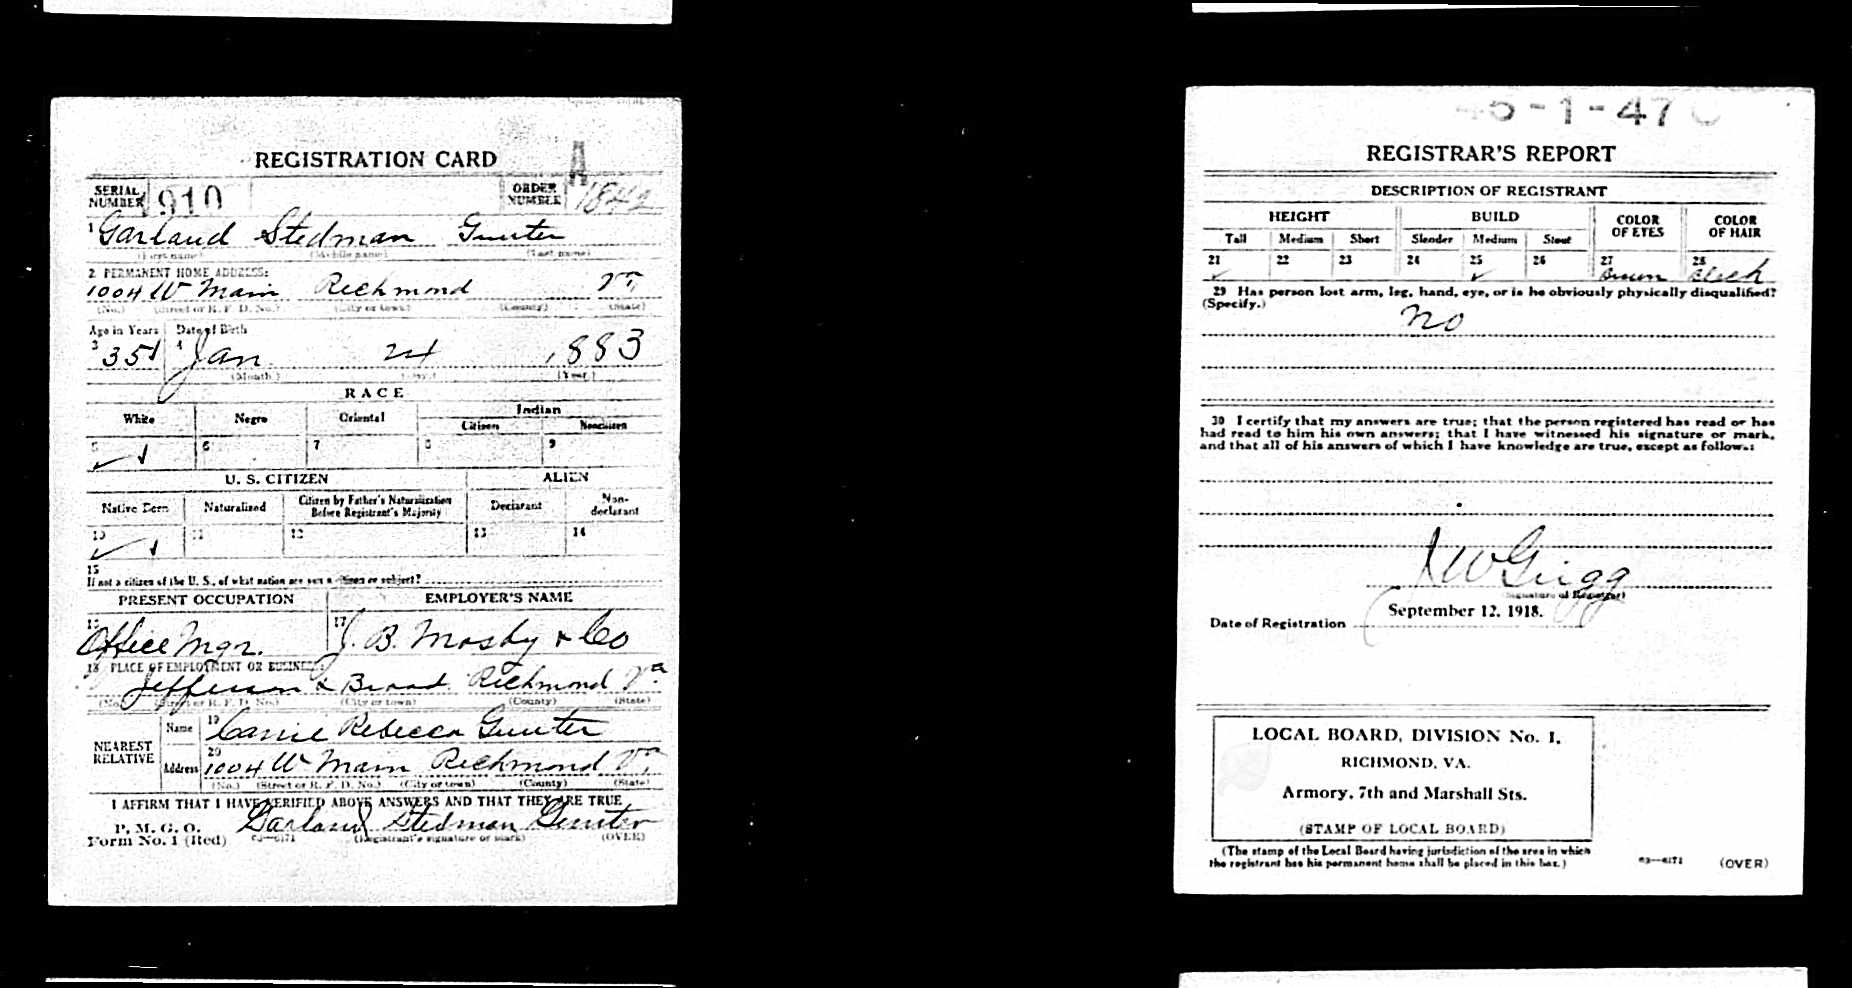 REGISTRATION CARD
SERIAL NUMBER 910 ORDER NUMBER A 1842
1 Garland Stedman Gunter
(First name) (Middle name) (Last name)
2 PERMANENT HOME ADDRESS:
1004 W Main Richmond Va
(No.) (Street or R. F. D. No.) (City or town) (County) (State)
Age in Years Date of Birth
3 35 4 Jan 24 1883
(Month) (Day) (Year)
RACE
White Negro Oriental Indian
Citizen Noncitizen
5 ✓ 6 7 8 9
U. S. CITIZEN ALIEN
Native Born Naturalized Citizen by Father's Naturalization Before Registrant's Majority Declarant Non-declarant
10 ✓ 11 12 13 14
15
If not a citizen of the U. S., of what nation are you a citizen or subject?
PRESENT OCCUPATION EMPLOYER'S NAME
16 Office Mgr. 17 J. B. Mosby & Co
18 PLACE OF EMPLOYMENT OR BUSINESS:
Jefferson & Broad Richmond Va
(No.) (Street or R. F. D. No.) (City or town) (County) (State)
NEAREST RELATIVE Name 19 Carrie Rebecca Gunter
Address 20 1004 W Main Richmond Va
(No.) (Street or R. F. D. No.) (City or town) (County) (State)
I AFFIRM THAT I HAVE VERIFIED ABOVE ANSWERS AND THAT THEY ARE TRUE
P. M. G. O.
Form No. 1 (Red) 03—6171 Garland Stedman Gunter
(Registrant's signature or mark) (OVER)
45-1-47 C
REGISTRAR'S REPORT
DESCRIPTION OF REGISTRANT
HEIGHT BUILD COLOR OF EYES COLOR OF HAIR
Tall Medium Short Slender Medium Stout
21 ✓ 22 23 24 25 ✓ 26 27 Brown 28 Black
29 Has person lost arm, leg, hand, eye, or is he obviously physically disqualified?
(Specify.) No
30 I certify that my answers are true; that the person registered has read or has
had read to him his own answers; that I have witnessed his signature or mark,
and that all of his answers of which I have knowledge are true, except as follows:
J W Grigg
(Signature of Registrar)
Date of Registration September 12, 1918.
LOCAL BOARD, DIVISION No. 1,
RICHMOND, VA.
Armory, 7th and Marshall Sts.
(STAMP OF LOCAL BOARD)
(The stamp of the Local Board having jurisdiction of the area in which
the registrant has his permanent home shall be placed in this box.)
03—6171 (OVER)